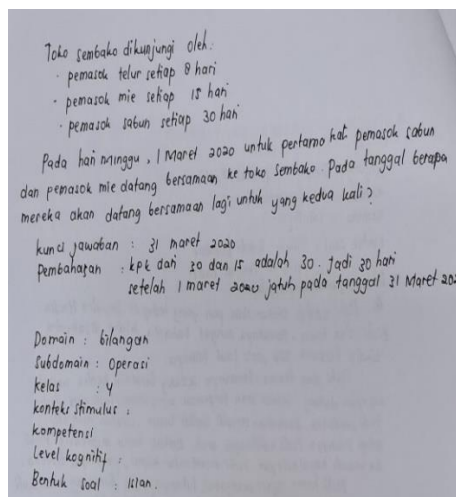 Toko sembako dikunjungi oleh:
· pemasok telur setiap 8 hari
· pemasok mie setiap 15 hari
· pemasok sabun setiap 30 hari
Pada hari minggu, 1 Maret 2020 untuk pertama kali pemasok sabun
dan pemasok mie datang bersamaan ke toko sembako. Pada tanggal berapa
mereka akan datang bersamaan lagi untuk yang kedua kali?
kunci jawaban : 31 maret 2020
Pembahasan : kpk dari 30 dan 15 adalah 30. Jadi 30 hari
setelah 1 maret 2020 jatuh pada tanggal 31 Maret 202
Domain : bilangan
Subdomain : Operasi
kelas : 4
konteks stimulus :
kompetensi
Level kognitif :
Bentuk soal : Isian.